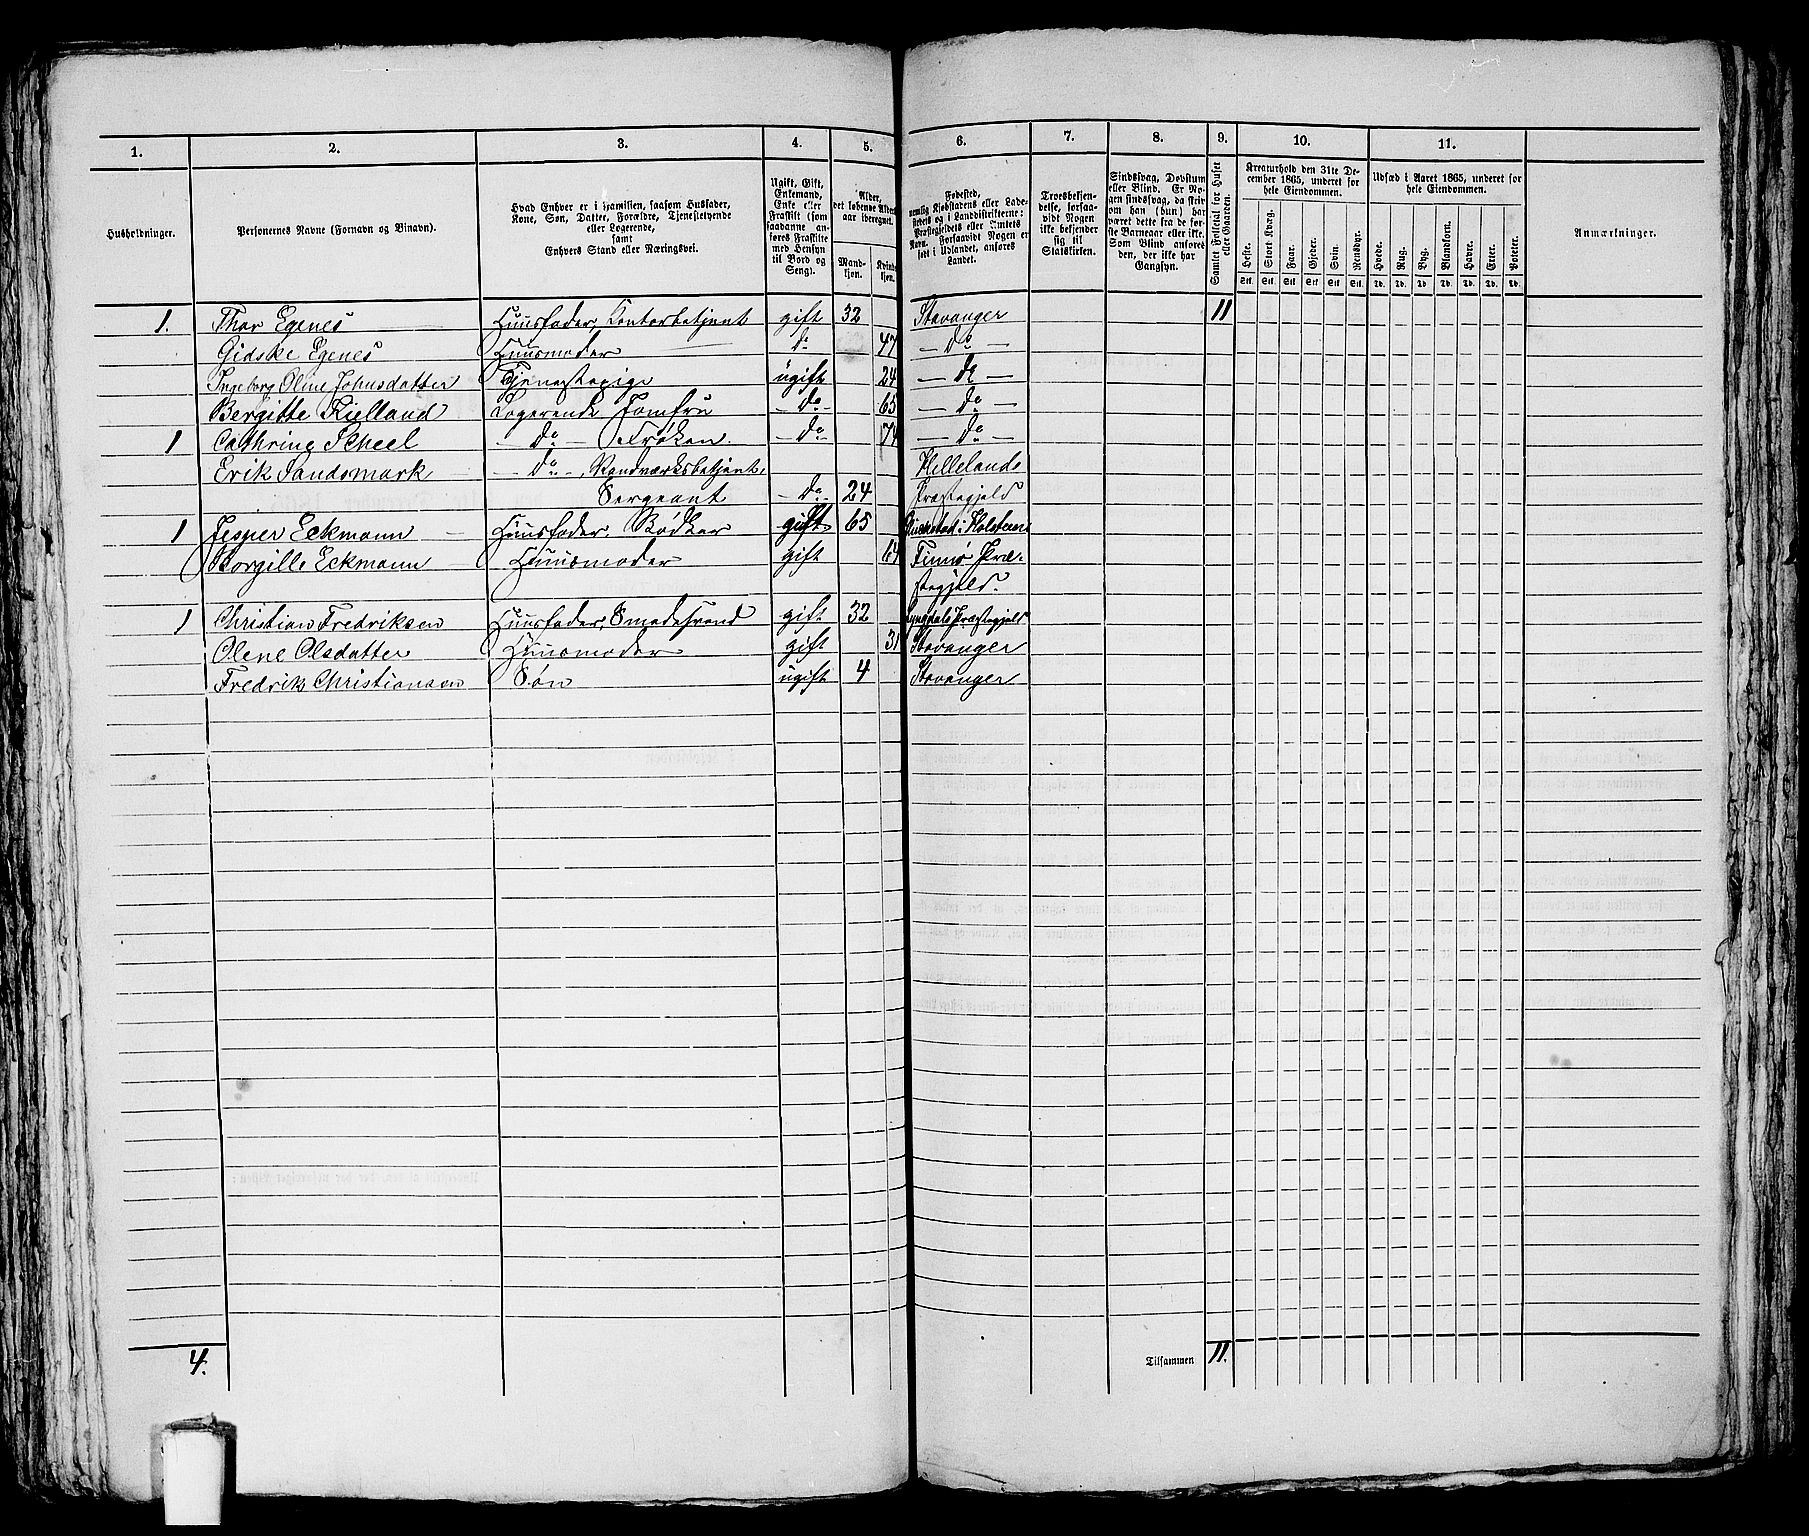 1. 2. 3. 4. 5. 6. 7. 8. 9. 10. 11.
Husholdninger.
Personernes Navne (Fornavn og Binavn).
Hvad Enhver er i Familien, saasom Husfader,
Kone, Søn, Datter, Forældre, Tjenestetyende
eller Logerende,
samt
Enhvers Stand eller Næringsvei.
Ugift, Gift,
Enkemand,
Enke eller
Fraskilt (som
saadanne an-
føres Fraskilte
med Hensyn
til Bord og
Seng).
Alder,
det løbende Alders-
aar iberegnet.
Mand-
kjøn.
Kvinde-
kjøn.
Fødested,
nemlig Kjøbstadens eller Lade-
stedets og i Landdistrikterne:
Præstegjeldets eller Amtets
Navn. Forsaavidt Nogen er
født i Udlandet, anføres
Landet.
Troesbekjen-
delse, forsaa-
vidt Nogen
ikke bekjender
sig til
Statskirken.
Sindssvag, Døvstum
eller Blind. Er No-
gen sindssvag, da skriv
om han (hun) har
været dette fra de før-
ste Barneaar eller ikke.
Som Blind anføres
den, der ikke har
Gangsyn.
Samlet Folketal for Huset
eller Gaarden.
Kreaturhold den 31te De-
cember 1865, underet for
hele Eiendommen.
Heste. Stort Kvæg. Faar. Gjeder. Svin. Rensdyr.
Stk. Stk. Stk. Stk. Stk. Stk.
Udsæd i Aaret 1865, underet for
hele Eiendommen.
Hvede. Rug. Byg. Blandkorn. Havre. Erter. Poteter.
Td. Td. Td. Td. Td. Td. Td.
Anmærkninger.
1. Thor Egenes Huusfader, Contorbetjent gift 32 Stavanger 11
Gidske Egenes Huusmoder do 47 — do —
Ingeborg Oline Johnsdatter Tjenestepige ugift 24 — do —
Bergitte Kielland Logerende Jomfru — do — 65 — do —
1 Cathrine Scheel — do — Frøken. — do — 74 — do —
Erik Sandsmark — do —, Hellelands
Sergeant — do — 24 Præstegjeld
1 Jesper Eckmann Huusfader, Bødker gift 65 i Holsteen
Eckmann Huusmoder gift Præ-
stegjeld.
1 Christian Fredriksen Huusfader, Smedesvend gift 32 Lyngdals Præstegjeld
Olene Olsdatter Huusmoder gift 31 Stavanger
Fredrik Christiansen Søn ugift 4 Stavanger
4. Tilsammen 11.